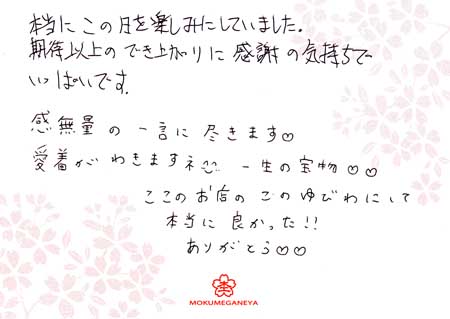 本当にこの日を楽しみにしていました。
期待以上のでき上がりに感謝の気持ちで
いっぱいです。
感無量の一言に尽きます♡
愛着がわきますネ 一生の宝物♡♡
ここのお店のこのゆびわにして
本当に良かった!!
ありがとう♡♡
MOKUMEGANEYA